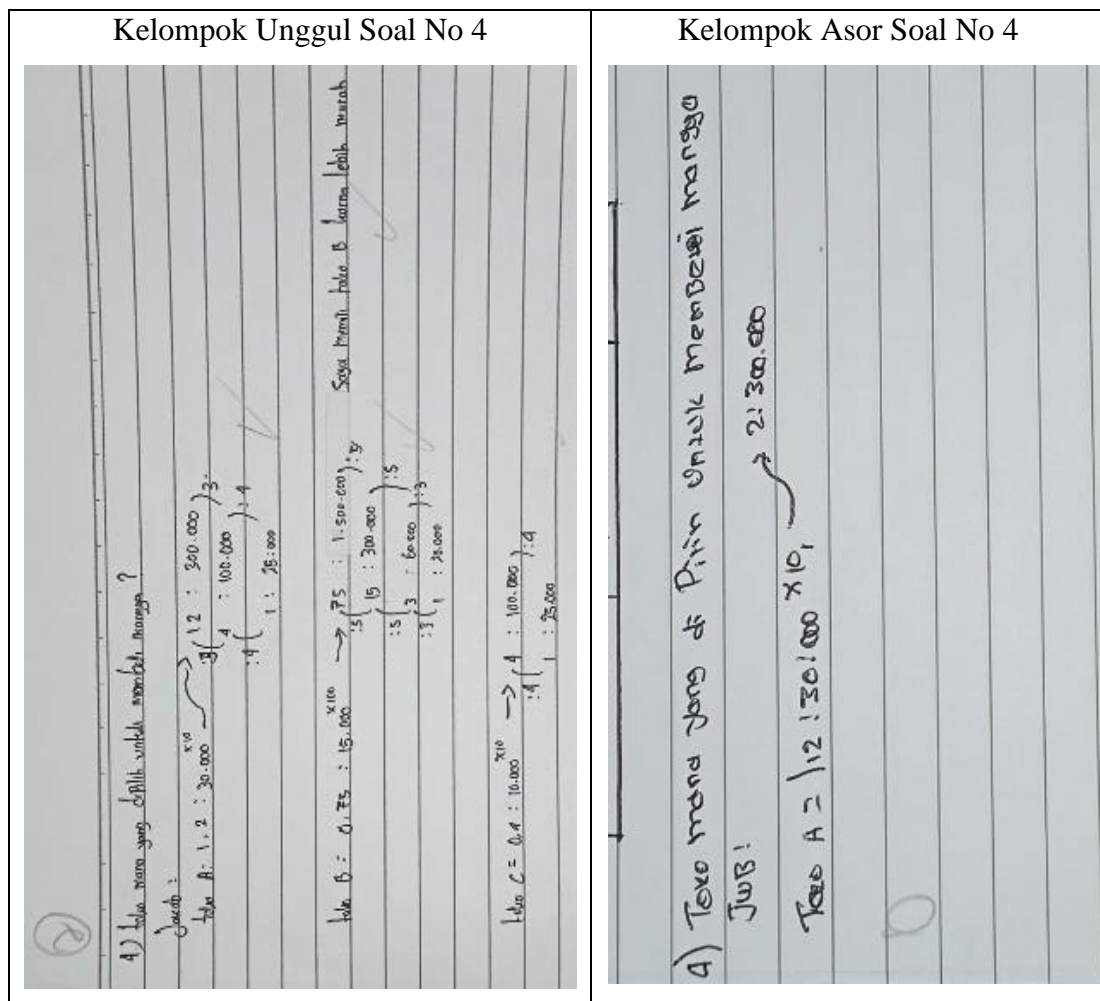 Kelompok Unggul Soal No 4
4) toko mana yang dipilih untuk membeli mangga ?
Jawab :
toko A : 1,2 : 30.000 x10 → 12 : 300.000 ) 3
:3 ( 4 : 100.000 ) : 4
:4 ( 1 : 25.000
toko B = 0,75 : 15.000 x100 → 75 : 1.500.000 ) : 5
:5 ( 15 : 300.000 ) :5
:5 ( 3 : 60.000 ) :3
:3 ( 1 : 20.000
Saya memili toko B karna lebih murah
toko C = 0,4 : 10.000 x10 → 4 : 100.000 ) :4
:4 ( 1 : 25.000
Kelompok Asor Soal No 4
4) Toko mana yang di Pilih Untuk membeli mangga
JWB !
Toko A = 1,2 : 30.000 x 10, → 2 : 300.000